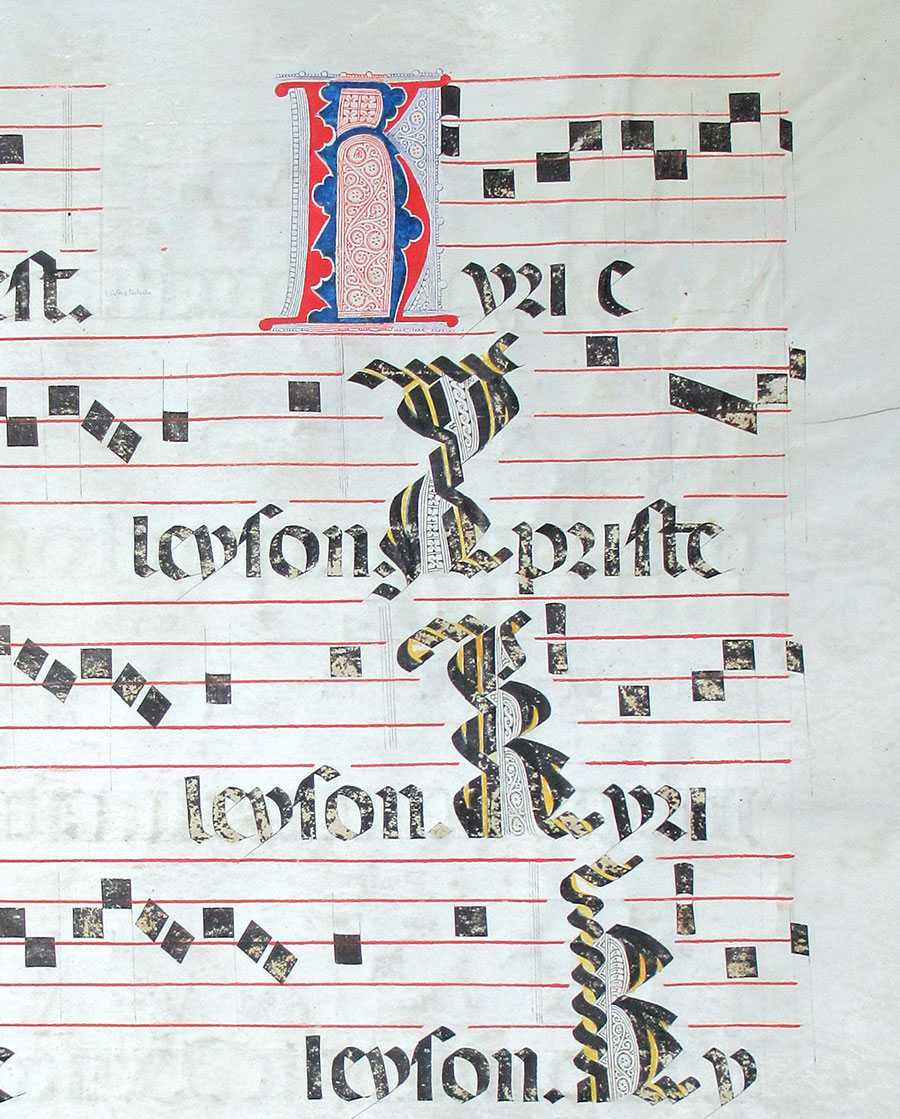 eſt. Kyri e
leyſon. Xpriſte
leyſon. Kyri
e leyſon. Ky